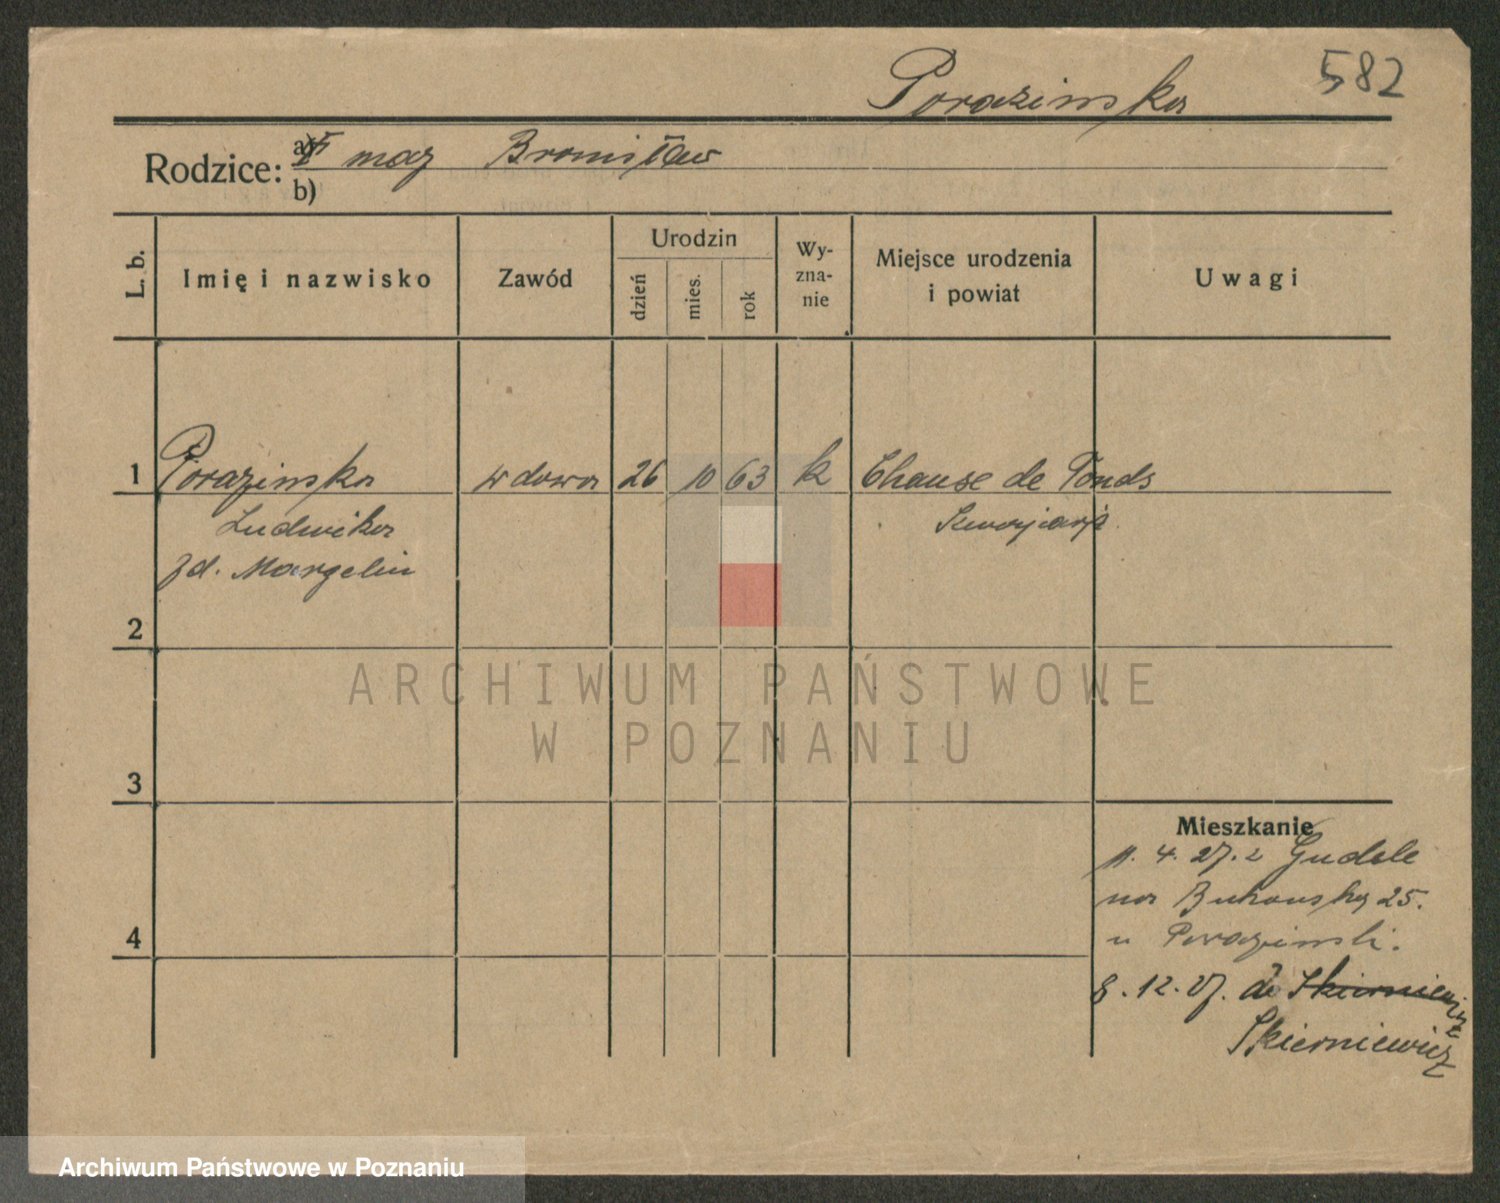 Porazinska
582
Rodzice: a) † mąż Bronisław
b)
L. b.
Imię i nazwisko
Zawód
Urodzin
dzień
mies.
rok
Wy-
zna-
nie
Miejsce urodzenia
i powiat
Uwagi
1 Porazinska wdowa 26 10 63 k Chause de Fonds
Ludwika Szwajcarja
zd. Margelin
2
3
4
Mieszkanie
11. 4. 27. z
na Bukowską 25.
u Porazinski.
8. 12. 27. do Skierniewicz
Skierniewicz
ARCHIWUM PAŃSTWOWE
W POZNANIU
Archiwum Państwowe w Poznaniu